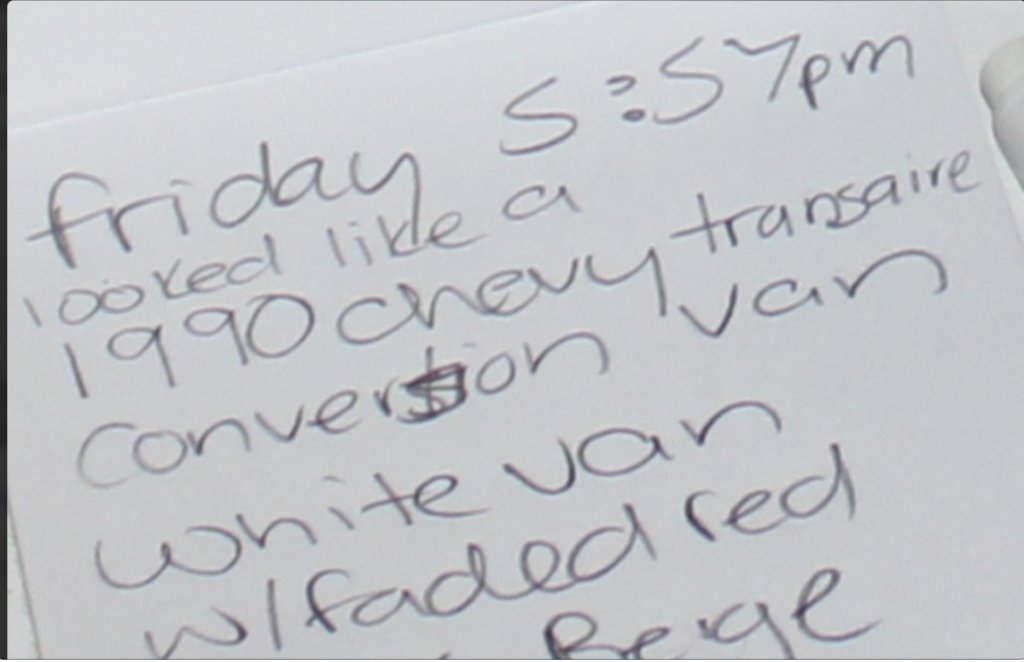 friday 5:57pm
looked like a
1990 chevy transaire
conversion van
white van
w/faded red
Beige